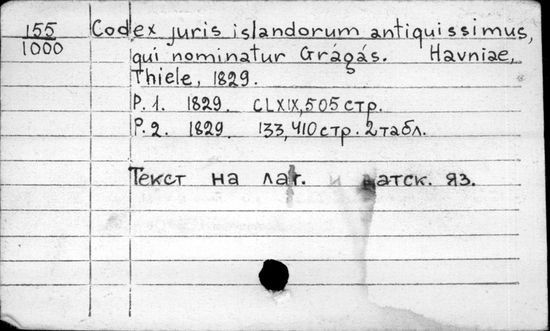 155
1000
Codex juris islandorum antiquissimus,
qui nominatur Grágás. Havniae,
Thiele, 1829.
P. 1. 1829. CLXIX, 505 стр.
P. 2. 1829. 133, 410 стр. 2 табл.
Текст на лат. и датск. яз.